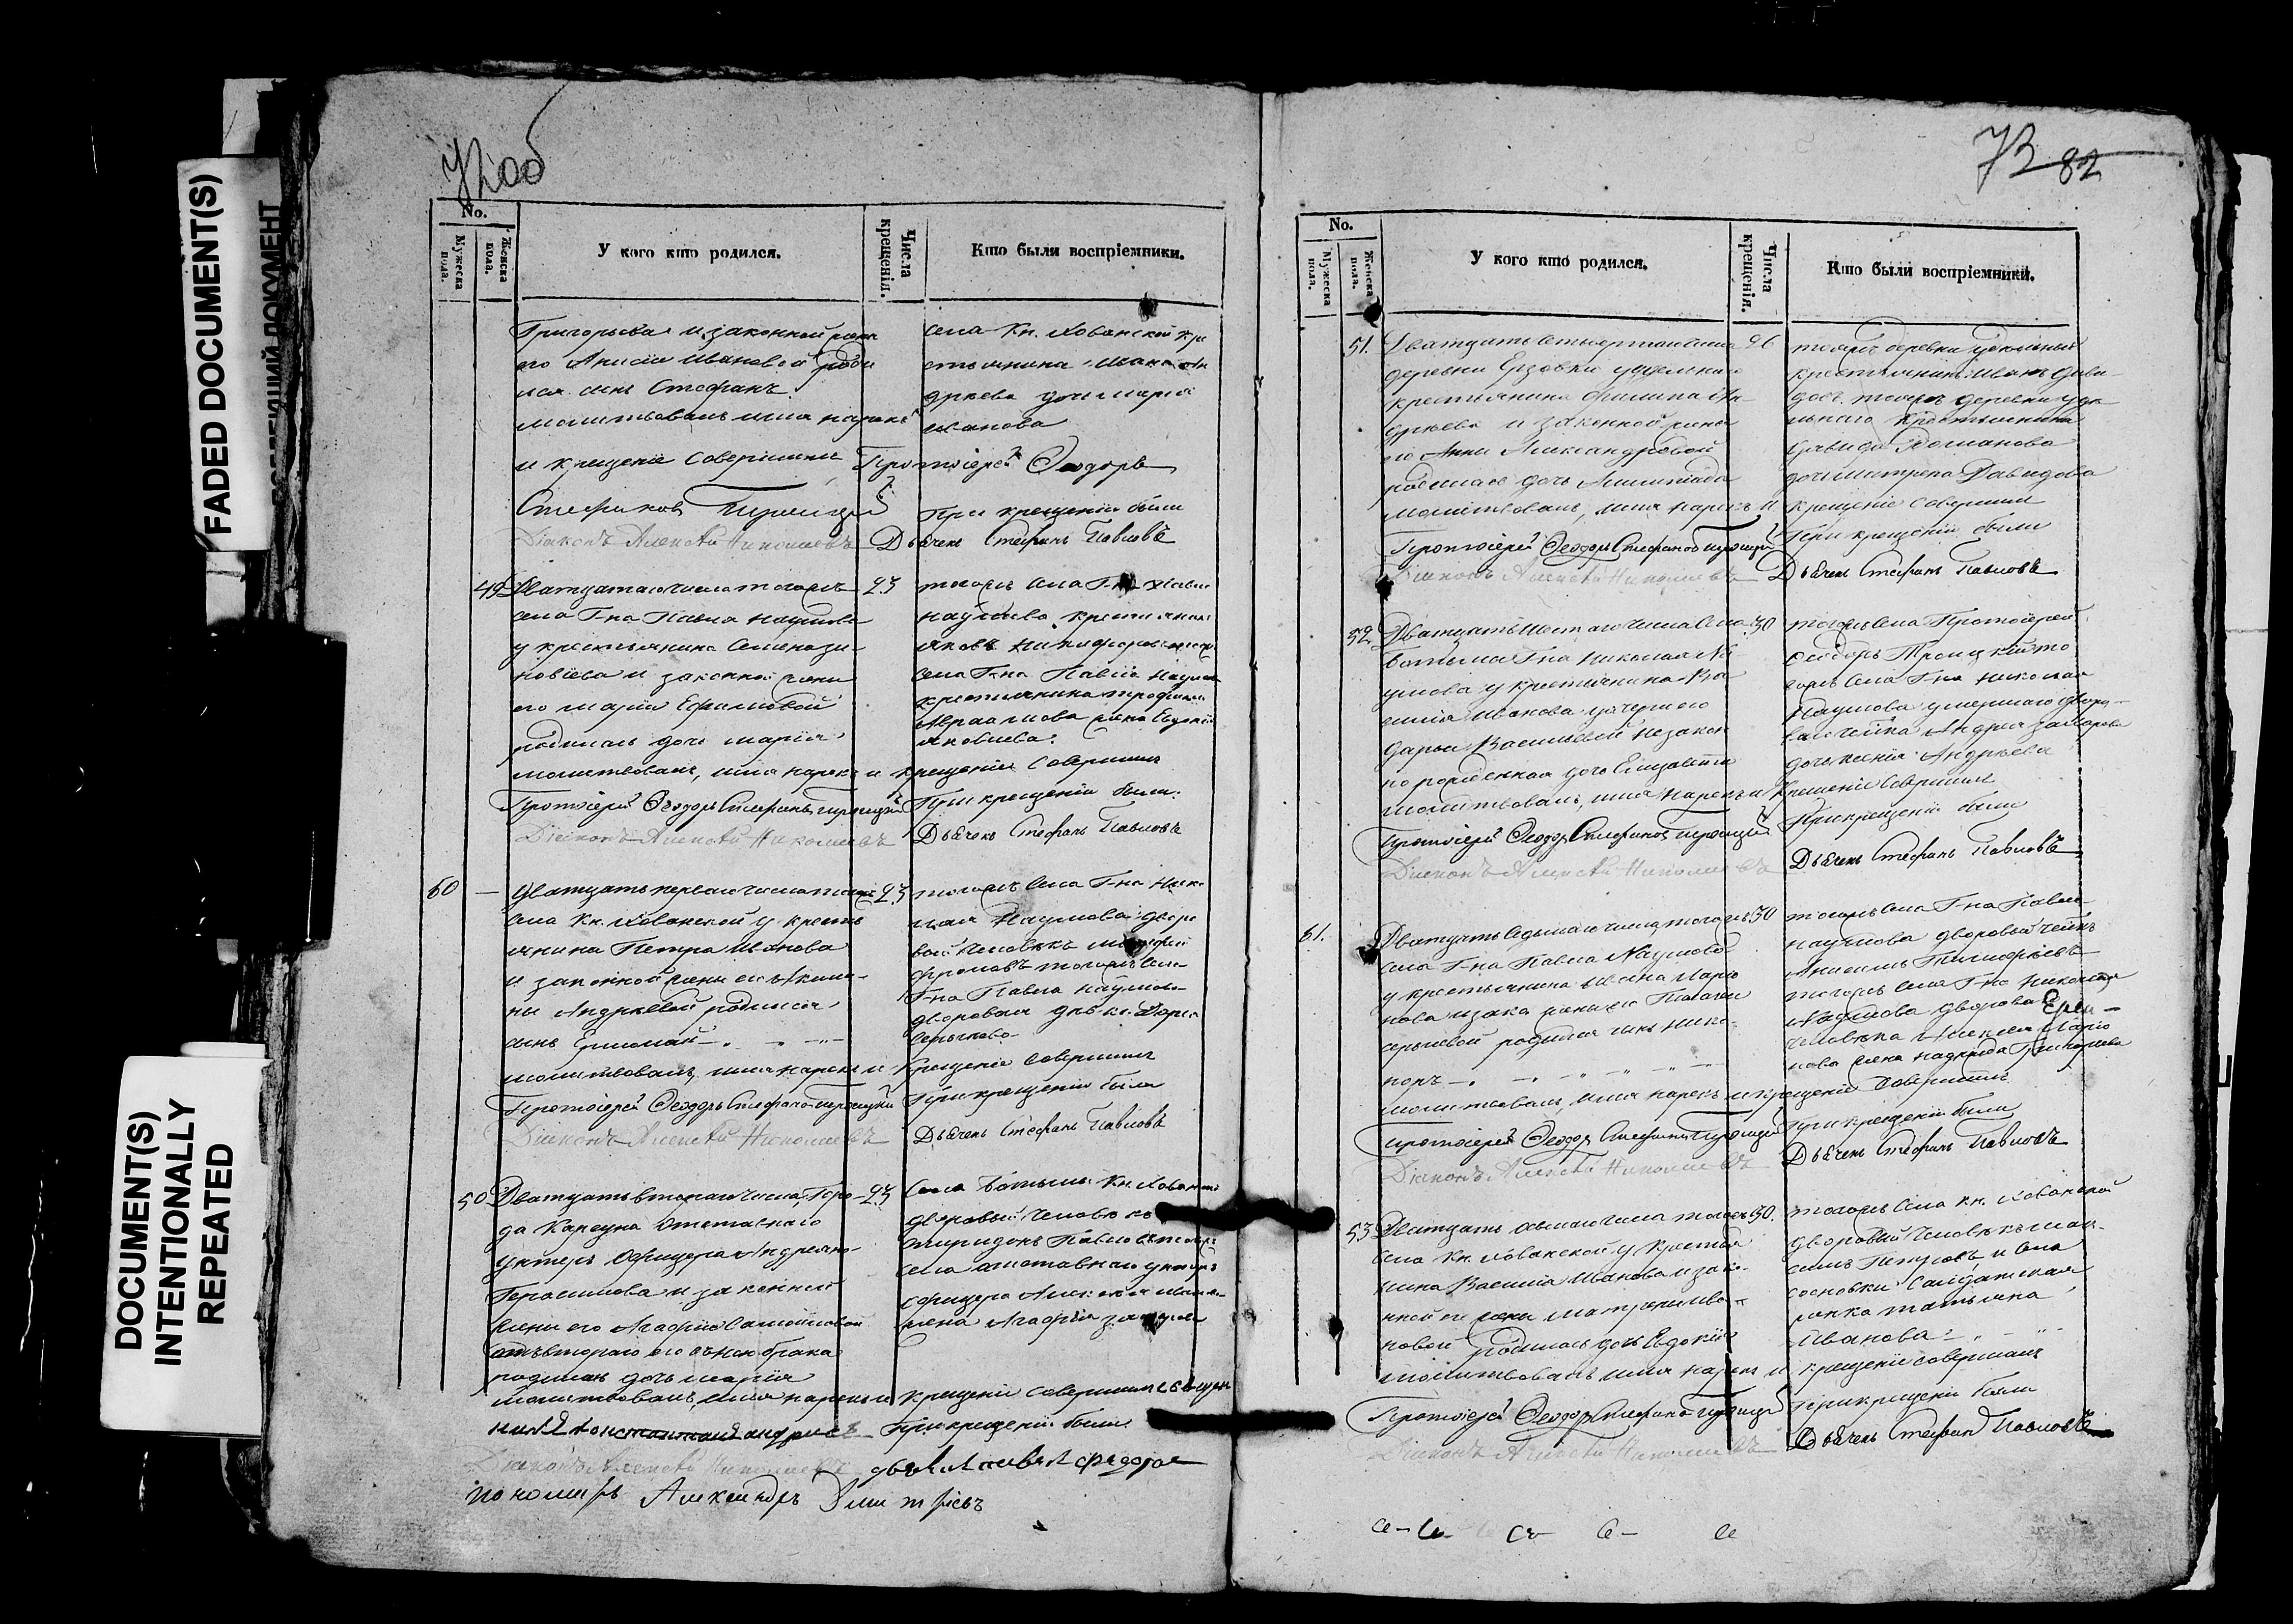 FADED DOCUMENT(S)
DOCUMENT(S)
INTENTIONALLY
REPEATED
72 об
No.
Мужеска пола.
Женска пола.
У кого кто родился.
Числа крещенія.
Кто были воспріемники.
Григорьева и законной жены
его Анисіи Ивановой роди
лся сынъ Стефанъ
молитвовалъ имя нарекъ
и крещеніе совершилъ Протоіерей Ѳеодоръ
Стефановъ Троицкій
Діаконъ Алексѣй Николаевъ
села Кн. Хованской кре
стьянина Ивана Ан
дреева дочь Марія
Иванова
При крещеніи были
Дьячекъ Стефанъ Павловъ
49
Двадцатаго числа тогожъ
села Г-на Павла Наумова
у крестьянина Семена Зи
новіева и законной жены
его Маріи Ефимовой
родилась дочь Марія
молитвовалъ, имя нарекъ и крещеніе совершилъ
Протоіерей Ѳеодоръ Стефановъ Троицкій
Діаконъ Алексѣй Николаевъ
23
тогожъ села Г-на Павла
Наумова крестьянинъ
Яковъ Никифоровъ
села Г-на Павла Наумова
крестьянина Трофима
Авраамова жена Евдокія
Яковлева.
При крещеніи были.
Дьячекъ Стефанъ Павловъ
60 —
Двадцать перваго числа тогожъ
села Кн. Хованской у кресть
янина Петра Иванова
и законной жены его Акили-
ны Андреевой родился
сынъ Ермолай
молитвовалъ, имя нарекъ и крещеніе совершилъ
Протоіерей Ѳеодоръ Стефановъ Троицкій
Діаконъ Алексѣй Николаевъ
23
тогожъ села Г-на Нико
лая Наумова дворо
вой человѣкъ
тогожъ села
Г-на Павла Наумова
дворовая дѣвка Дарья
При крещеніи были
Дьячекъ Стефанъ Павловъ
50
Двадцать втораго числа, Горо-
да Карсуна отставнаго
унтеръ офицера Андреяна
Герасимова и законной
жены его Агафіи Самойловой
отъ втораго его брака
родилась дочь Марія
молитвовалъ, имя нарекъ и крещеніе совершилъ священ
никъ Константинъ Андреевъ
Діаконъ Алексѣй Николаевъ
пономарь Александръ Дмитріевъ
23
Села Ботьмы Кн. Хованской
дворовый человѣкъ
Спиридонъ Павловъ
села отставнаго унтеръ
офицера Алексѣя
жена Агафія
При крещеніи были
73 82
No.
Мужеска пола.
Женска пола.
У кого кто родился.
Числа крещенія.
Кто были воспріемники.
51.
Двадцать четвертаго числа
деревни Ерзовки удѣльнаго
крестьянина Филипа Ан
дреева и законной жены
его Анны Александровой
родилась дочь
молитвовалъ, имя нарекъ и крещеніе совершилъ
Протоіерей Ѳеодоръ Стефановъ Троицкій
Діаконъ Алексѣй Николаевъ
26
тойжъ деревни удѣльный
крестьянинъ Иванъ Дави-
довъ. тойжъ деревни удѣ
льнаго крестьянина
Давида Романова
дочь Матрена Давидова
При крещеніи были
Дьячекъ Стефанъ Павловъ
52
Двадцать шестаго числа села
Ботьмы Г-на Николая На
умова у крестьянина Ва
силія Иванова у дочери его
Дарьи Васильевой незакон
но рожденная дочь Елизавета
молитвовалъ, имя нарекъ и крещеніе совершилъ
Протоіерей Ѳеодоръ Стефановъ Троицкій
Діаконъ Алексѣй Николаевъ
30
тогожъ села Протоіерей
Ѳеодоръ Троицкій то
гожъ села Г-на Николая
Наумова умершаго дворо-
ваго человѣка Андрея Захарова
дочь Ксенія Андреева
При крещеніи были
Дьячекъ Стефанъ Павловъ
61.
Двадцать седьмаго числа тогожъ
села Г-на Павла Наумова
у крестьянина Ивана Ларіо
нова и зако жены его Пелагеи
Сергѣевой родился сынъ Ника-
норъ
молитвовалъ, имя нарекъ и крещеніе совершилъ
Протоіерей Ѳеодоръ Стефановъ Троицкій
Діаконъ Алексѣй Николаевъ
30
тогожъ села Г-на Павла
Наумова дворовый человѣкъ
Анисимъ Тимофѣевъ
тогожъ села Г-на Николая
Наумова двороваго
человѣка Алексѣя Ларіо
нова жена Надежда Григорьева
При крещеніи были
Дьячекъ Стефанъ Павловъ
53
Двадцать осьмаго числа тогожъ
села Кн. Хованской у крестья
нина Василія Иванова и зако-
нной его жены Матрены Ива-
новой родилась дочь Евдокія
молитвовалъ имя нарекъ и крещеніе совершилъ
Протоіерей Ѳеодоръ Стефановъ Троицкій
Діаконъ Алексѣй Николаевъ
30.
тогожъ села Кн. Хованской
дворовый человѣкъ Мак-
симъ Петровъ и села
Сосновки солдатская
жонка Татьяна
Иванова
При крещеніи были
Дьячекъ Стефанъ Павловъ